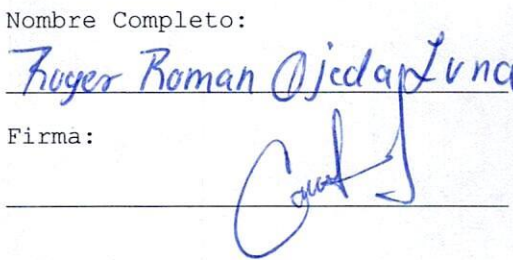 Nombre Completo:
Roger Roman Ojeda Luna
Firma: